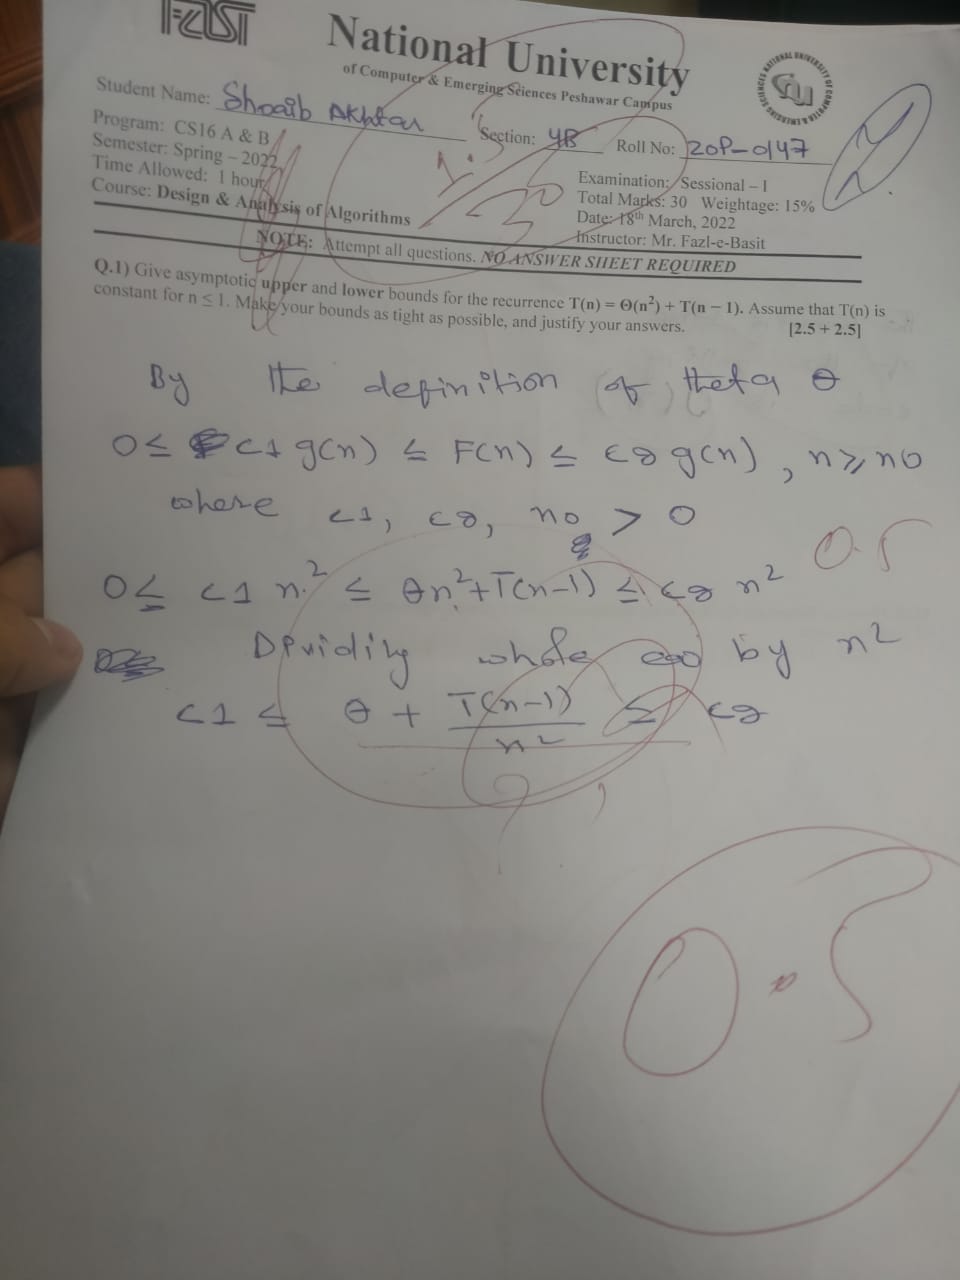 FAST
National University
of Computer & Emerging Sciences Peshawar Campus
Student Name: Shoaib Akhtar Section: 4B Roll No: 20P-0147
Program: CS16 A & B
Semester: Spring – 2022
Time Allowed: 1 hour
Course: Design & Analysis of Algorithms
Examination: Sessional – I
Total Marks: 30 Weightage: 15%
Date: 18th March, 2022
Instructor: Mr. Fazl-e-Basit
NOTE: Attempt all questions. NO ANSWER SHEET REQUIRED
Q.1) Give asymptotic upper and lower bounds for the recurrence T(n) = Θ(n²) + T(n – 1). Assume that T(n) is
constant for n ≤ 1. Make your bounds as tight as possible, and justify your answers. [2.5 + 2.5]
By the definition of theta θ
0 ≤ c1 g(n) ≤ F(n) ≤ c2 g(n), n ≥ n0
where c1, c2, n0 > 0
0.5
0 ≤ c1 n² ≤ θn²+T(n-1) ≤ c2 n²
Dividing whole by n²
c1 ≤ θ + T(n-1)/n² ≤ c2
0.5